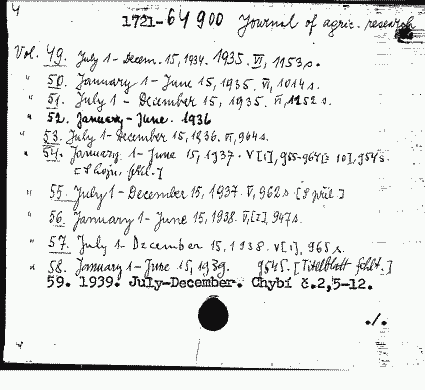 4
1721-64900 Journal of agric. research
Vol. 49. July 1 - Decem. 15, 1934. 1935. VI, 1153 s.
" 50. January 1 - June 15, 1935. VI, 1014 s.
" 51. July 1 - December 15, 1935. VI, 1152 s.
" 52. January - June. 1936
" 53. July 1 - December 15, 1936. VI, 964 s.
" 54. January 1 - June 15, 1937. V [1],
" 55. July 1 - December 15, 1937. V, 962 s. [8 příl.]
" 56. January 1 - June 15, 1938. V, [1], 947 s.
" 57. July 1 - December 15, 1938. V [1], 965 s.
" 58. January 1 - June 15, 1939. 954 S. [Titelblatt fehlt.]
59. 1939. July-December. Chybí č.2,5-12.
./.